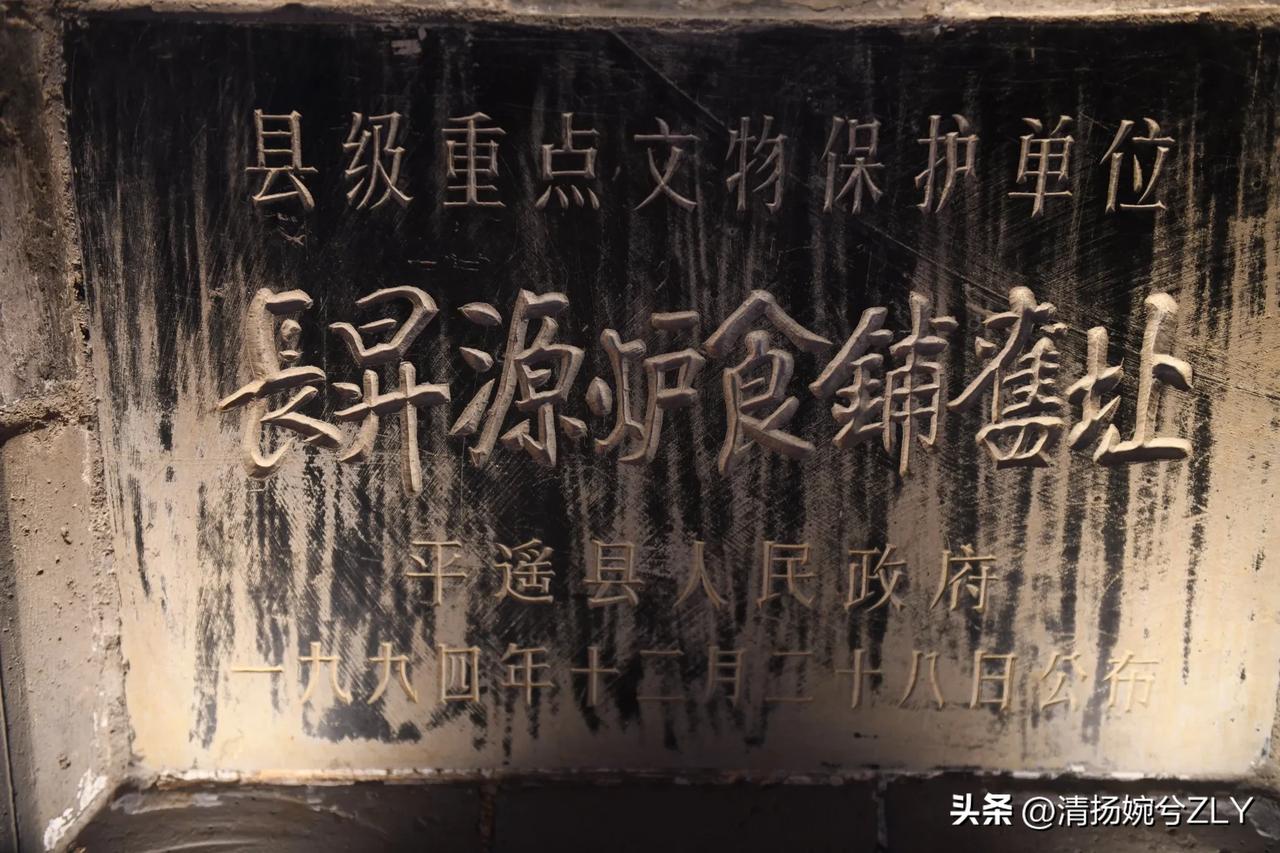 县级重点文物保护单位
長昇源炉食铺舊址
平遥县人民政府
一九九四年十二月二十八日公布
头条 @清扬婉兮ZLY